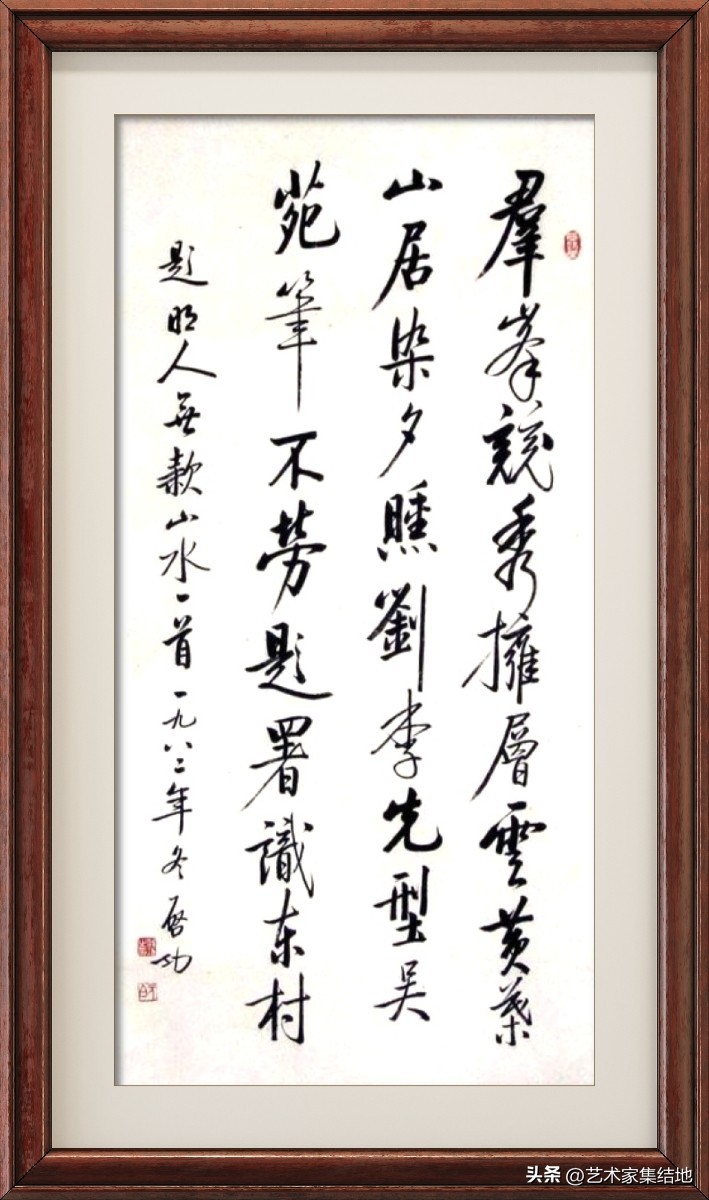 羣峯競秀擁層雲黄葉
山居染夕曛劉李先型吴
苑筆不勞題署識東村
题明人無款山水一首一九八二年冬启功
头条 @艺术家集结地